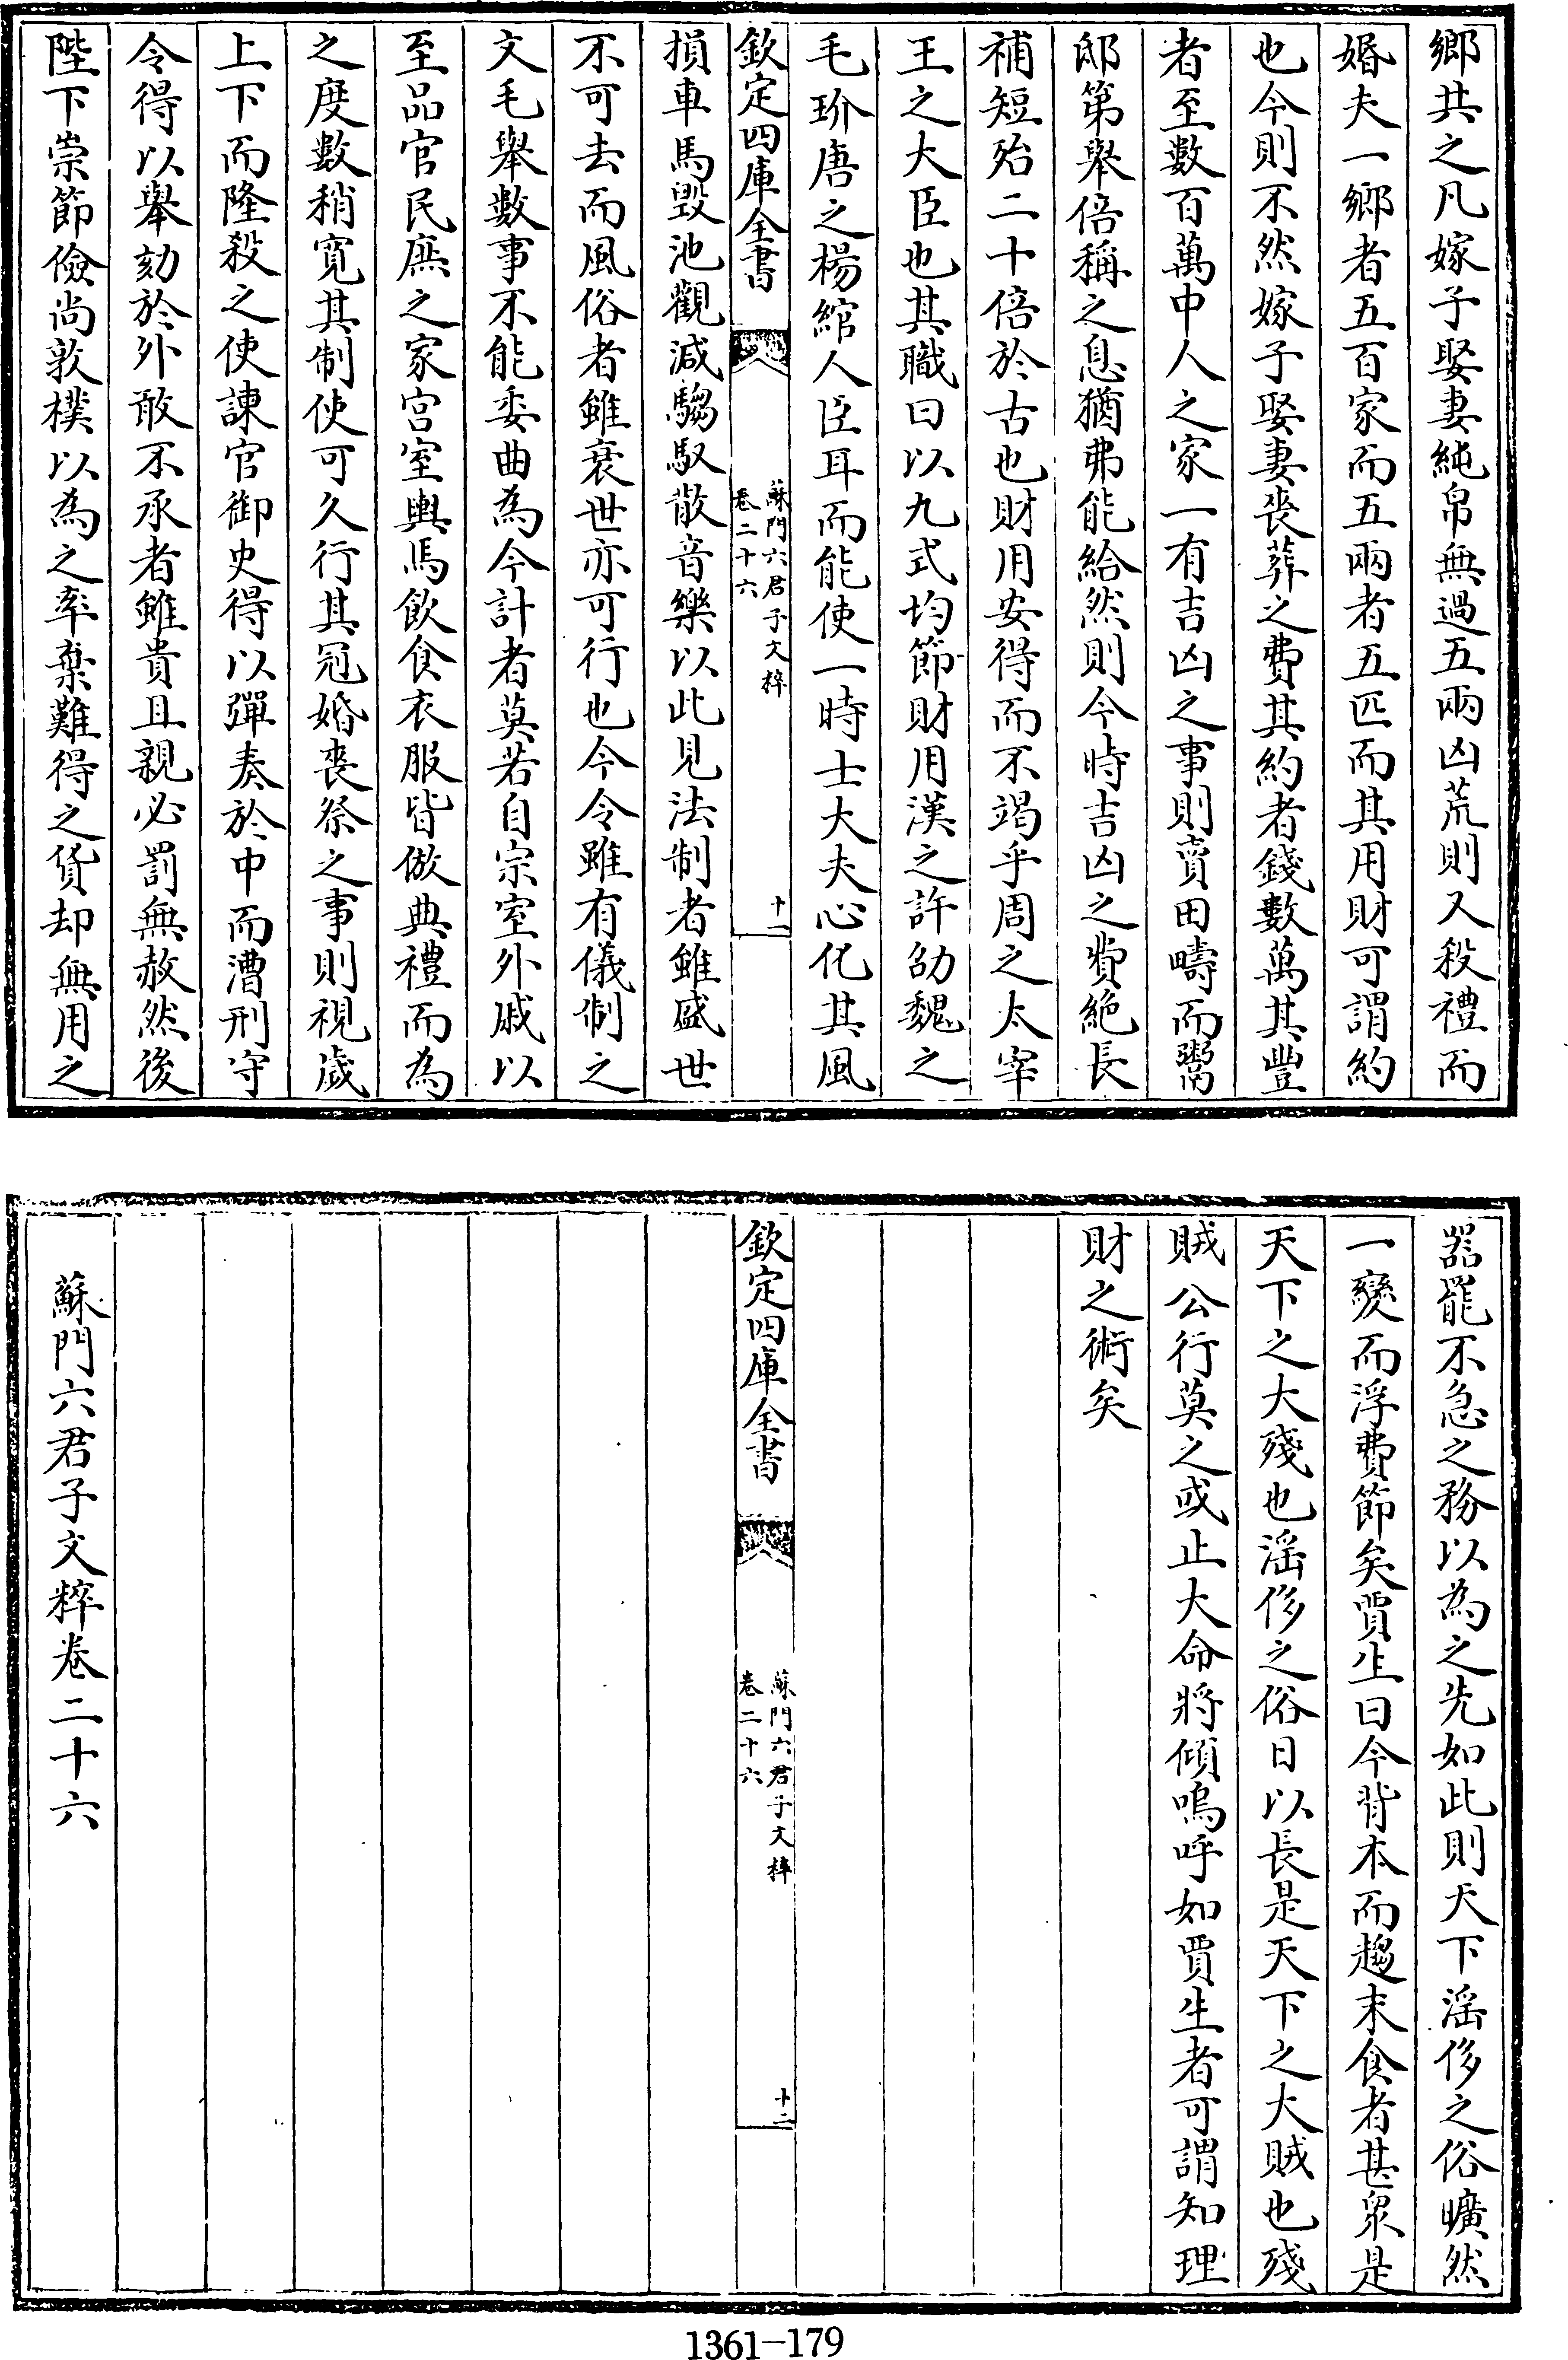 鄉共之凡嫁子娶妻純帛無過五兩凶荒則又殺禮而
婚夫一鄉者五百家而五兩者五匹而其用財可謂約
也今則不然嫁子娶妻喪葬之費其約者錢數萬其豐
者至數百萬中人之家一有吉凶之事則賣田疇而鬻
邸第舉倍稱之息猶弗能給然則今時吉凶之費絶長
補短殆二十倍於古也財用安得而不竭乎周之太宰
王之大臣也其職曰以九式均節財用漢之許劭魏之
毛玠唐之楊綰人臣耳而能使一時士大夫心化其風
欽定四庫全書
蘇門六君子文粹
卷二十六
十一
損車馬毁池觀減騶馭散音樂以此見法制者雖盛世
不可去而風俗者雖衰世亦可行也今令雖有儀制之
文毛舉數事不能委曲為今計者莫若自宗室外戚以
至品官民庶之家宫室輿馬飲食衣服皆倣典禮而為
之度數稍寛其制使可久行其冠婚喪祭之事則視歲
上下而隆殺之使諫官御史得以彈奏於中而漕刑守
令得以舉劾於外敢不承者雖貴且親必罰無赦然後
陛下崇節儉尚敦樸以為之率棄難得之貨却無用之
器罷不急之務以為之先如此則天下滛侈之俗曠然
一變而浮費節矣賈生曰今背本而趨末食者甚衆是
天下之大殘也滛侈之俗日以長是天下之大賊也殘
賊公行莫之或止大命將傾嗚呼如賈生者可謂知理
財之術矣
欽定四庫全書
蘇門六君子文粹
卷二十六
十二
蘇門六君子文粹卷二十六
1361-179